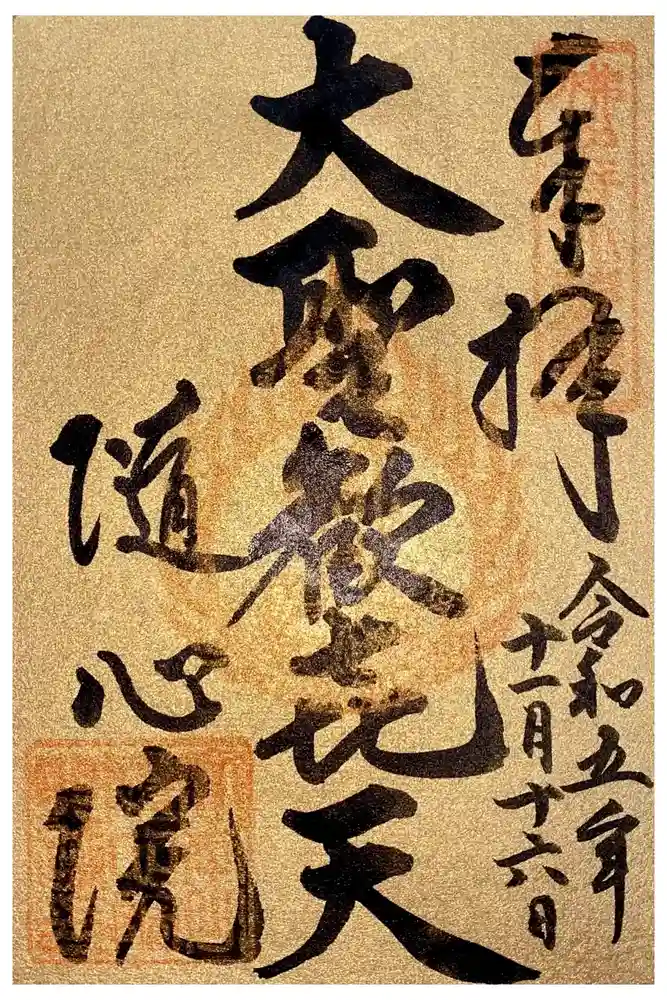 奉拝
令和五年
十一月十六日
大聖歓㐂天
随心院